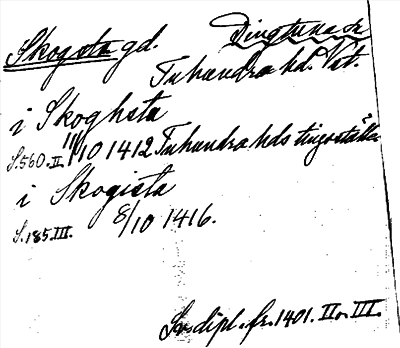 Skogsta gd. Dingtuna sn
Tuhundra hd. Vst.
i Skoghsta
S.560.II. 11/10 1412 Tuhundra hds tingsställe
i Skogista
S.185.III. 8/10 1416.
Sv. dipl. fr. 1401. II o. III.